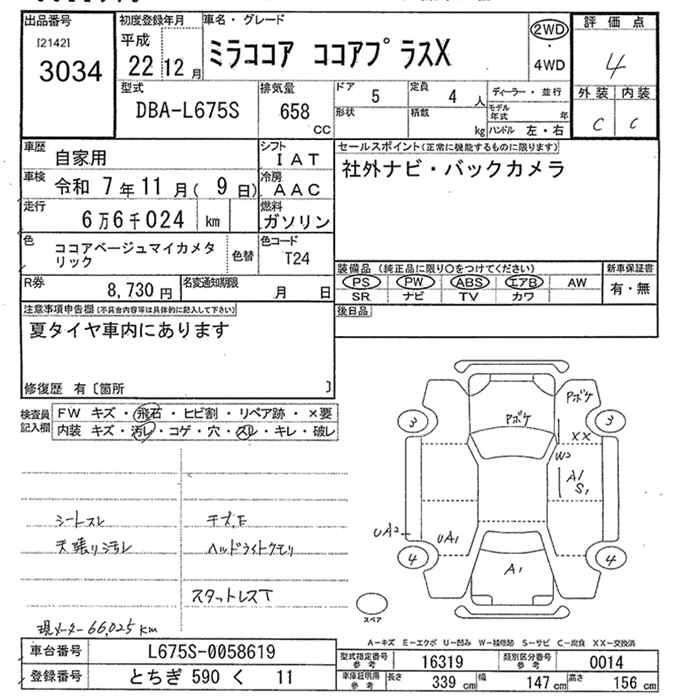 出品番号
[2142]
3034
初度登録年月
平成
22 12 月
車名・グレード
ミラココア ココアプラスX
2WD
・
4WD
評価点
4
外装 内装
C C
型式
DBA-L675S
排気量
658
CC
ドア 5
定員 4 人
形状
積載 kg
ディーラー・並行
モデル年式 年
ハンドル 左・右
車歴
自家用
シフト
IAT
車検 令和 7 年 11 月 ( 9 日)
冷房
AAC
走行
6万6千024 km
燃料
ガソリン
色
ココアベージュマイカメタ
リック
色替
色コード
T24
R券
8,730 円
名変通知期限
月 日
セールスポイント(正常に機能するものに限ります)
社外ナビ・バックカメラ
装備品 (純正品に限り○をつけてください)
PS PW ABS エアB AW
SR ナビ TV カワ
新車保証書
有・無
後日品
注意事項申告欄(不具合内容等は具体的に記入して下さい)
夏タイヤ車内にあります
修復歴 有〔箇所 〕
検査員
記入欄
FW キズ・飛石・ヒビ割・リペア跡・×要
内装 キズ・汚レ・コゲ・穴・スレ・キレ・破レ
シートスレ
天張り汚レ
キズ、E
ヘッドライトクモリ
スタットレスT
現メーター 66,025 km
Pボケ
Pボケ
3
3
XX
W2
A1
S1
UA2
UA1
4
4
A1
スペア
A-キズ E-エクボ U-凹み W-補修跡 S-サビ C-腐食 XX-交換済
車台番号 L675S-0058619
登録番号 とちぎ 590 く 11
型式指定番号
参考
16319
類別区分番号
参考
0014
車庫証明用
参考
長さ 339 cm 幅 147 cm 高さ 156 cm